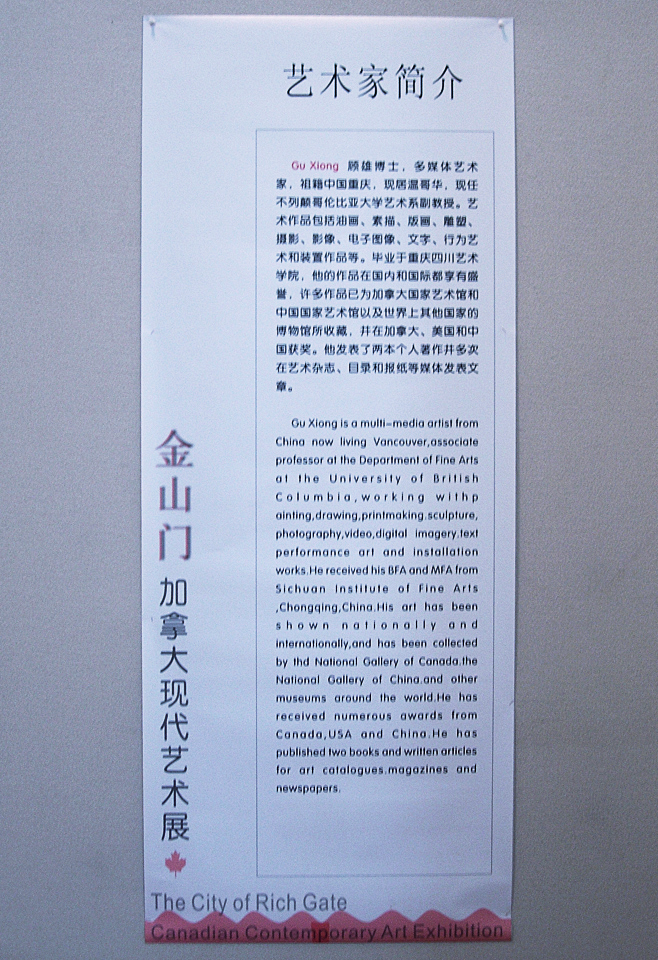 艺术家简介
Gu Xiong 顾雄博士，多媒体艺术
家，祖籍中国重庆，现居温哥华，现任
不列颠哥伦比亚大学艺术系副教授。艺
术作品包括油画、素描、版画、雕塑、
摄影、影像、电子图像、文字、行为艺
术和装置作品等。毕业于重庆四川艺术
学院，他的作品在国内和国际都享有盛
誉，许多作品已为加拿大国家艺术馆和
中国国家艺术馆以及世界上其他国家的
博物馆所收藏，并在加拿大、美国和中
国获奖。他发表了两本个人著作并多次
在艺术杂志、目录和报纸等媒体发表文
章。
Gu Xiong is a multi-media artist from
China now living Vancouver,associate
professor at the Department of Fine Arts
at the University of British
Columbia,working withp
ainting,drawing,printmaking.sculpture,
photography,video,digital imagery.text
performance art and installation
works.He received his BFA and MFA from
Sichuan Institute of Fine Arts
,Chongqing,China.His art has been
shown nationally and
internationally,and has been collected
by thd National Gallery of Canada.the
National Gallery of China.and other
museums around the world.He has
received numerous awards from
Canada,USA and China.He has
published two books and written articles
for art catalogues.magazines and
newspapers.
金山门 加拿大现代艺术展
The City of Rich Gate
Canadian Contemporary Art Exhibition